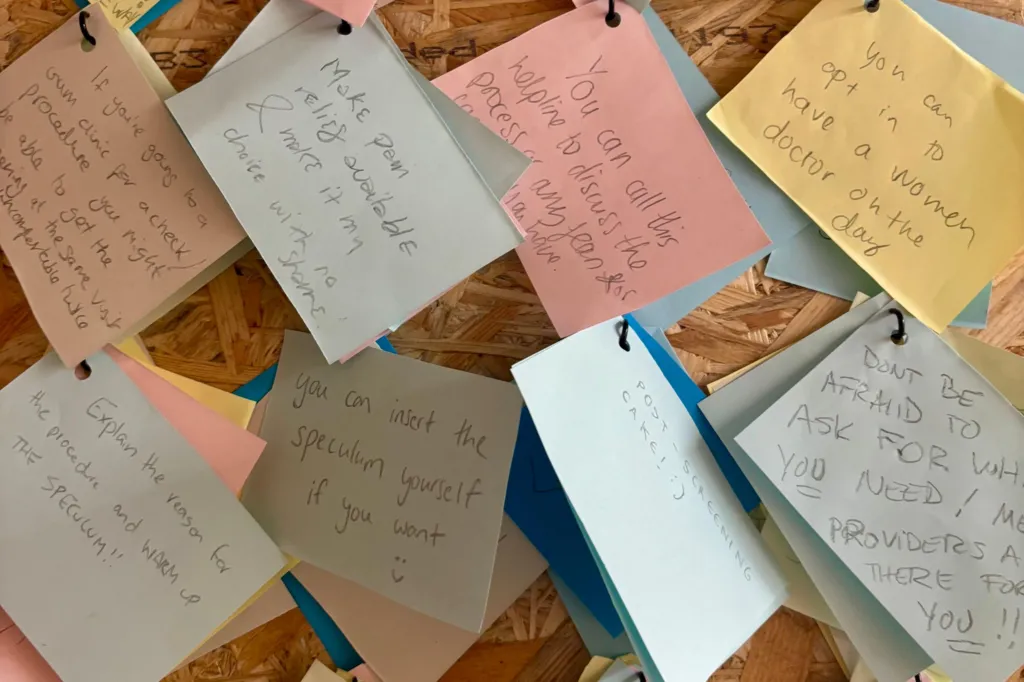 If you're going to a
gum clinic for a check/
procedure you might
be able to get the
at the same visit
uncomfortable twice
Make pain
relief available
& make it my
choice with no
shame!
You can call this
helpline to discuss the
process or any fear
have.
you can
opt in to
have a women
doctor on the
day
Explain the reason for
the procedure and WARM UP
THE SPECULUM!!
you can insert the
speculum yourself
if you want
:)
POST SCREENING
CAKE! :)
DONT BE
AFRAID TO
ASK FOR
YOU NEED!
PROVIDERS
THERE FOR
YOU!!